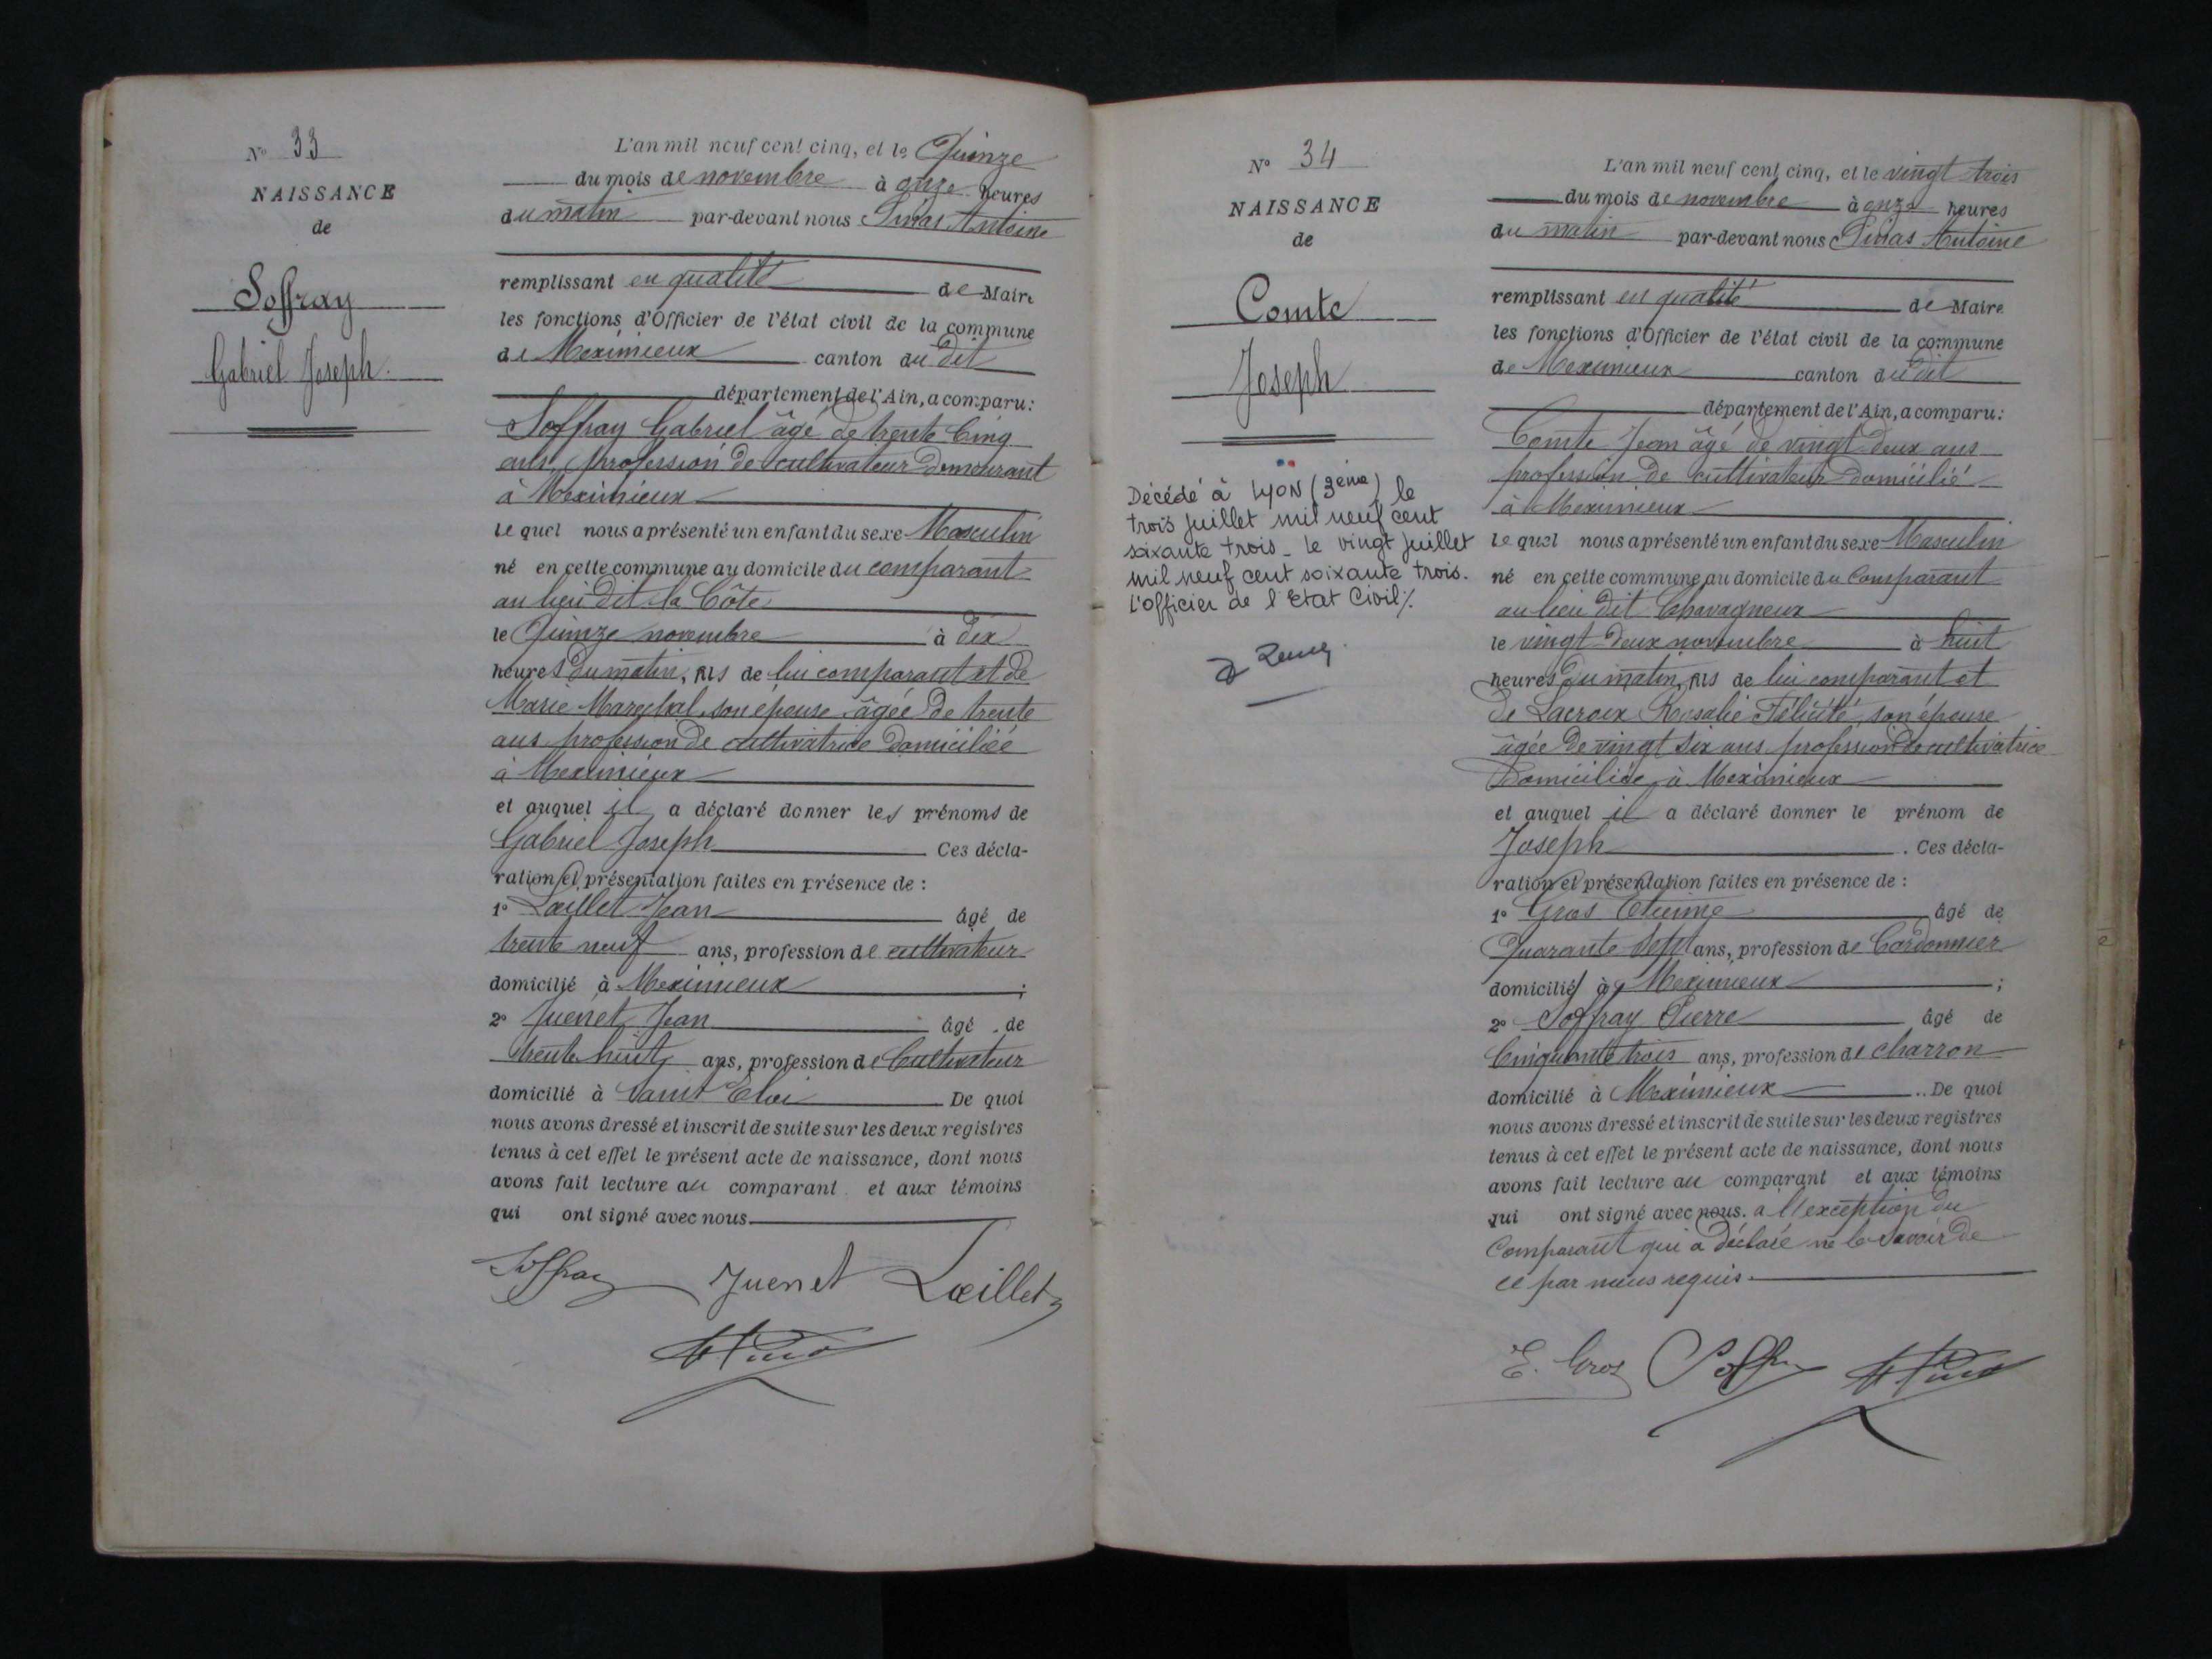 N° 33
NAISSANCE
de
Soffray
Gabriel Joseph.
L'an mil neuf cent cinq, et le Quinze
du mois de novembre à onze heures
du matin par-devant nous Antoine
remplissant en qualité de Maire
les fonctions d'Officier de l'état civil de la commune
de Meximieux canton du dit
département de l'Ain, a comparu :
Soffray Gabriel âgé de trente Cinq
ans, profession de cultivateur demeurant
à Meximieux
lequel nous a présenté un enfant du sexe Masculin
né en cette commune au domicile du comparant
au lieu dit la Côte
le Quinze novembre à dix
heures du matin, fils de lui comparant et de
Marie Marechal, son épouse âgée de trente
ans profession de cultivatrice domiciliée
à Meximieux
et auquel il a déclaré donner les prénoms de
Gabriel Joseph Ces décla-
ration et présentation faites en présence de :
1° Lœillet Jean âgé de
trente neuf ans, profession de cultivateur
domicilié à Meximieux ;
2° Juenet Jean âgé de
trente huit ans, profession de Cultivateur
domicilié à Saint Eloi De quoi
nous avons dressé et inscrit de suite sur les deux registres
tenus à cet effet le présent acte de naissance, dont nous
avons fait lecture au comparant et aux témoins
qui ont signé avec nous.
Soffray Juenet Lœillet
N° 34
NAISSANCE
de
Comte
Joseph
Décédé à LYON (3ème) le
trois juillet mil neuf cent
soixante trois - le vingt juillet
mil neuf cent soixante trois.
L'officier de l'Etat Civil %.
L'an mil neuf cent cinq, et le vingt trois
du mois de novembre à onze heures
du matin par-devant nous Antoine
remplissant en qualité de Maire
les fonctions d'Officier de l'état civil de la commune
de Meximieux canton du dit
département de l'Ain, a comparu :
Comte Jean âgé de vingt deux ans
profession de cultivateur domicilié
à Meximieux
lequel nous a présenté un enfant du sexe Masculin
né en cette commune au domicile du Comparant
au lieu dit Chavagneux
le vingt deux novembre à huit
heures du matin, fils de lui comparant et
de Lacroix Rosalie Félicité, son épouse
âgée de vingt six ans profession de cultivatrice
Domiciliée à Meximieux
et auquel il a déclaré donner le prénom de
Joseph . Ces décla-
ration et présentation faites en présence de :
1° Gros Etienne âgé de
Quarante Sept ans, profession de Cordonnier
domicilié à Meximieux ;
2° Soffray Pierre âgé de
Cinquante trois ans, profession de charron
domicilié à Meximieux . De quoi
nous avons dressé et inscrit de suite sur les deux registres
tenus à cet effet le présent acte de naissance, dont nous
avons fait lecture au comparant et aux témoins
qui ont signé avec nous. a l'exception du
Comparant qui a déclaré ne le savoir de
ce par nous requis.
E. Gros Soffray